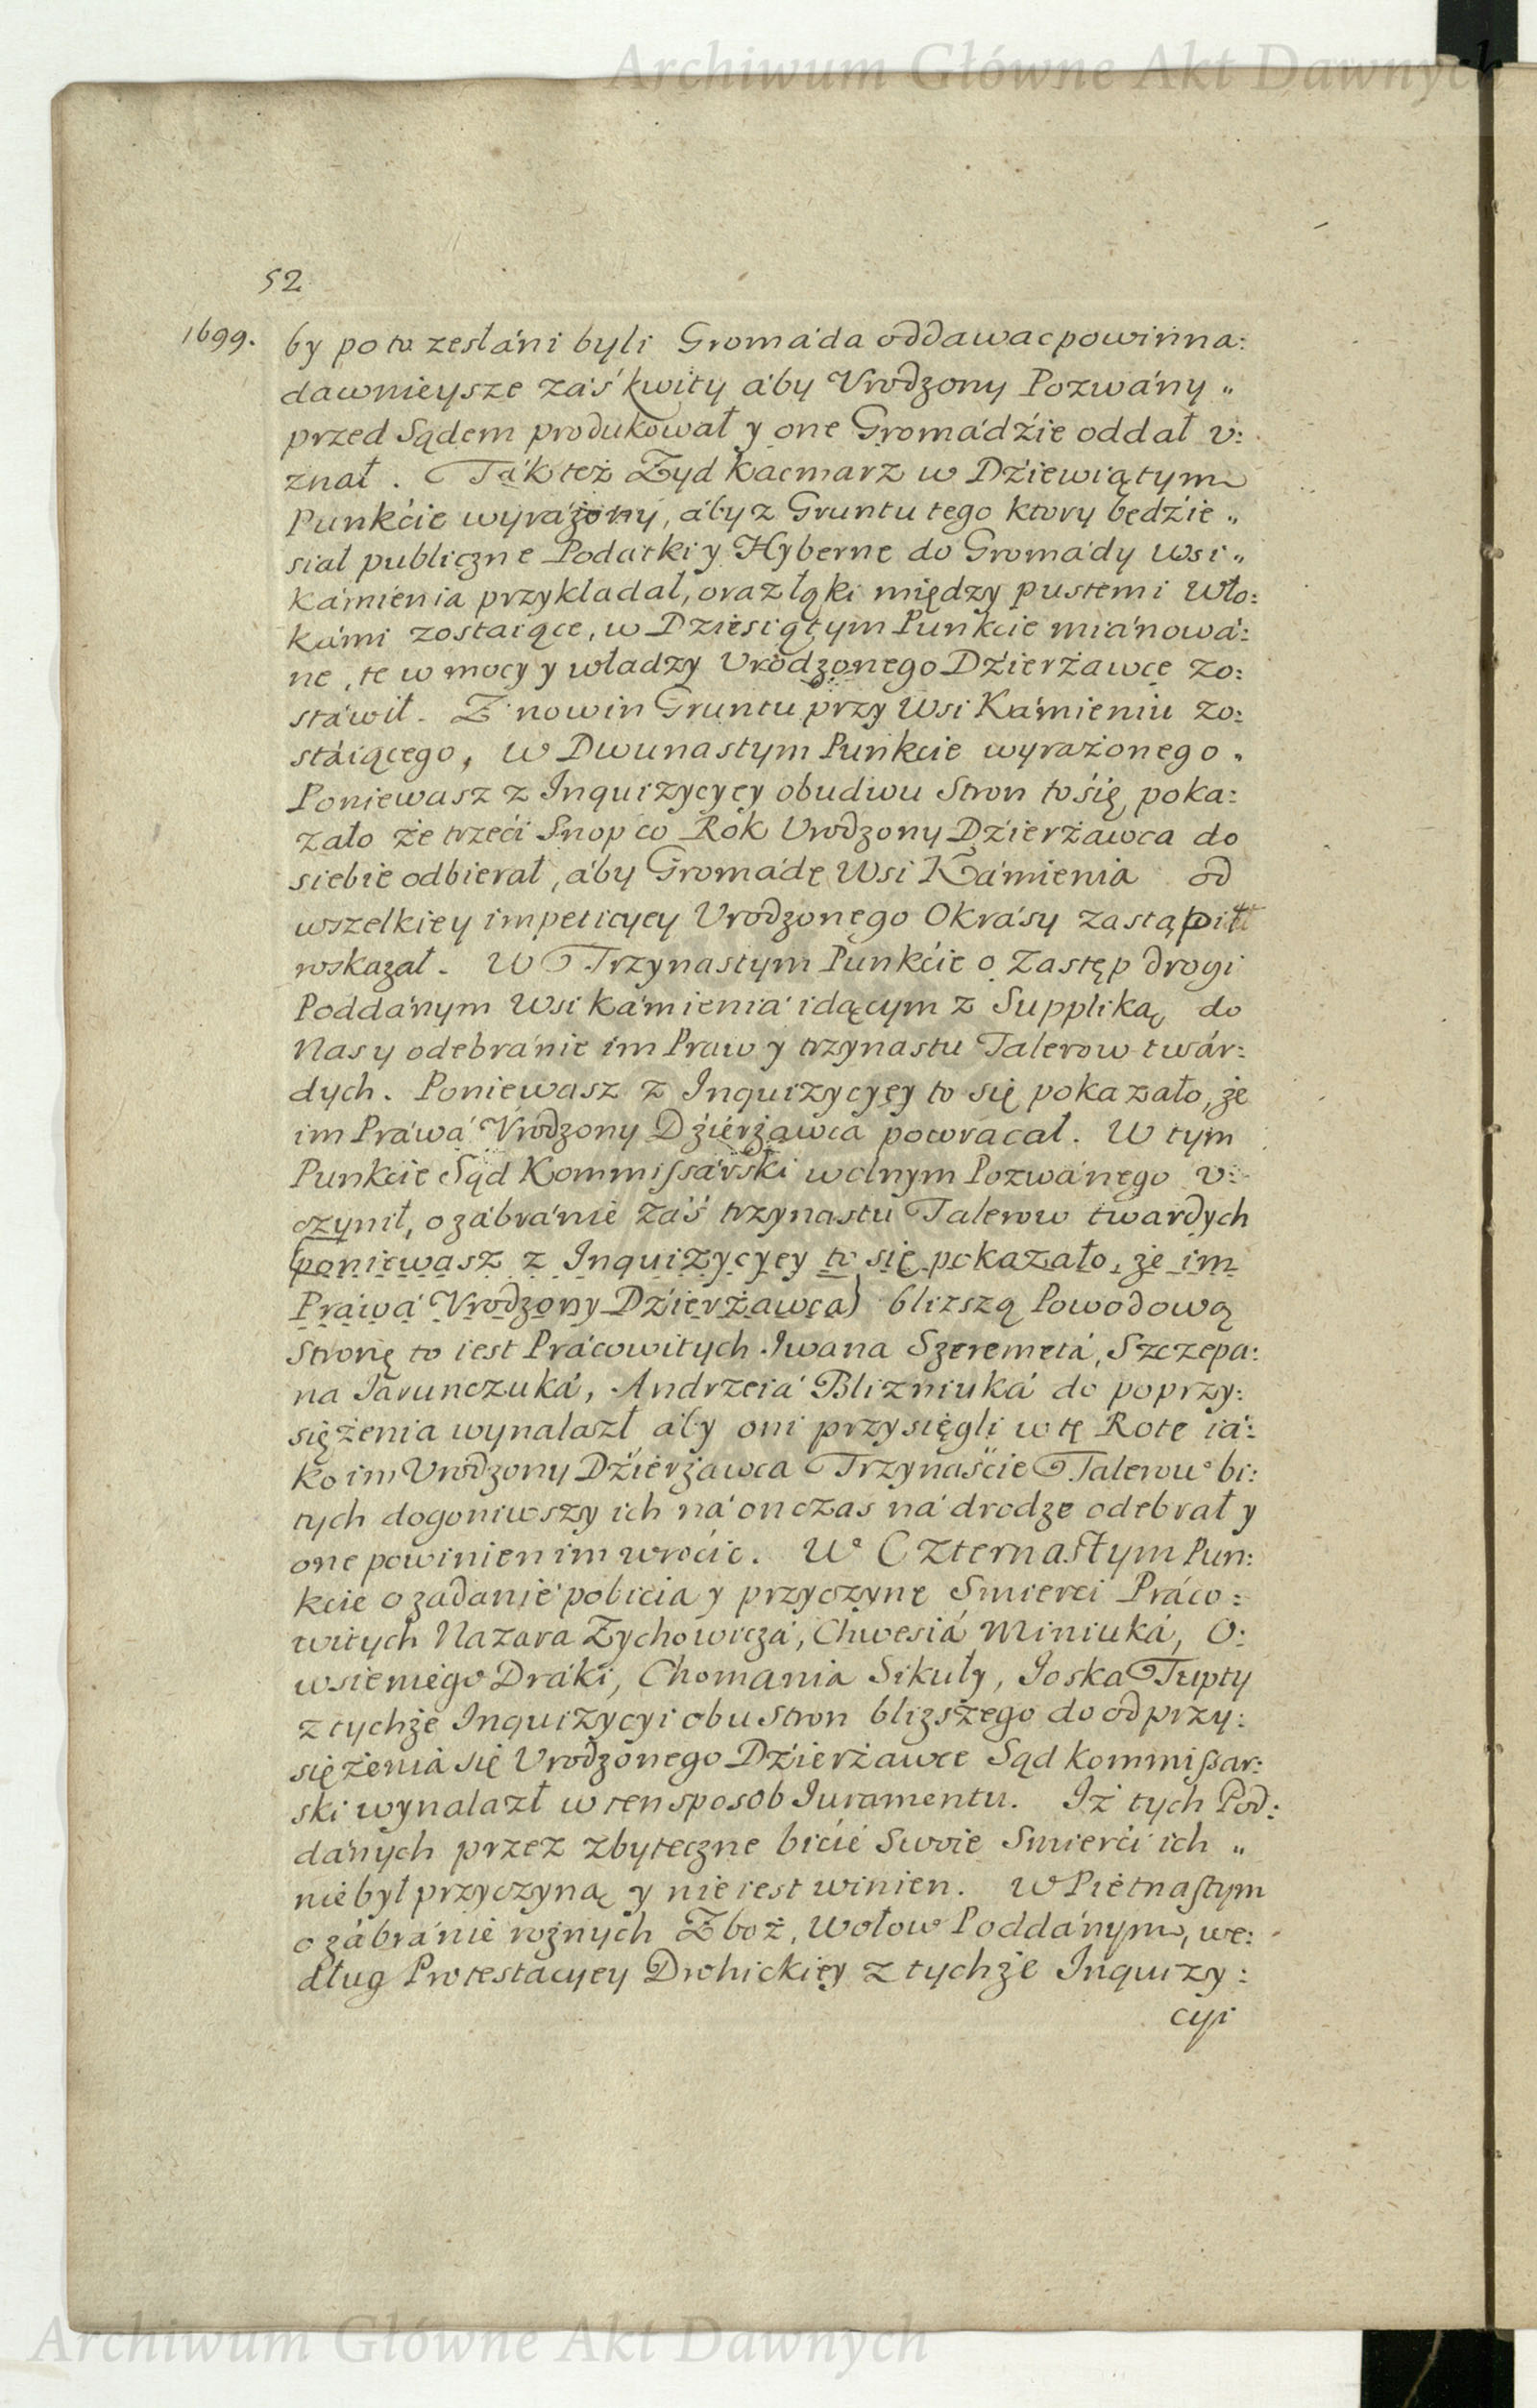 Archiwum Główne Akt Dawnych
52
1699. by po to zesłáni byli Gromáda oddawac powinna:
dawnieysze záś kwity áby Vrodzony Pozwány „
przed Sądem produkował y one Gromádźie oddał v:
znał. Ták też Zyd kacmarz w Dźiewiątym
Punkćie wyrażony, áby z Gruntu tego ktory będźie „
siał publiczne Podatki y Hyberne do Gromády wsi „
Kámienia przykladał, oraz łąki między pustemi Wło:
kámi zostaiące, w Dziesiątym Punkcie miánowá:
ne, te w mocy y władzy Vrodzonego Dźierżawce zo:
stáwił. Z nowin Gruntu przy Wsi Kámieniu zo:
stáiącego, w Dwunastym Punkcie wyrażonego.
Poniewasz z Inquizycyey obudwu Stron to się poka:
zało że trzeći Snop co Rok Vrodzony Dźierżawca do
siebie odbierał, áby Gromádę Wsi Kámienia od
wszelkiey impeticyey Vrodzonego Okrásy zastąpił
wskazał. W Trzynastym Punkćie o Zastęp drogi
Poddánym Wsi Kámieniá idącym z Suppliką do
Nas y odebránie im Praw y trzynastu Talerow twár:
dych. Poniewasz z Inquizycyey to się pokazało, że
im Práwá Vrodzony Dźierżawca powracał. W tym
Punkcie Sąd Kommissárski wolnym Pozwánego v:
czynił, o zábránie záś trzynastu Talerow twardych
(poniewasz z Inquizycyey to się pokazało, że im
Práwá Vrodzony Dźierżawca) blizszą Powodową
Stronę to iest Prácowitych Iwana Szeremetá, Szczepa:
na Iarunczuká, Andrzeiá Blizniuká do poprzy:
siężenia wynalazł aby oni przysięgli w tę Rotę iá:
ko im Vrodzony Dźierżawca Trzynaście Talerow bi:
tych dogoniwszy ich ná on czas ná drodze odebrał y
one powinien im wroćic. W Czternastym Pun:
kcie o zadanie pobicia y przyczynę Smierci Práco:
witych Nazara Zychowiczá, Chwesiá Miniuká, O:
wsieniego Dráki, Chomania Sikuły, Ioska Tupty
z tychże Inquizycyi obu Stron blizszego do odprzy:
siężenia się Vrodzonego Dźierżawce Sąd kommissar:
ski wynalazł w ten sposob Iuramentu. Iż tych Pod:
dánych przez zbyteczne bićie Swoie Smierći ich „
nie był przyczyną y nie iest winien. W Piętnastym
o zábránie roznych Zboż, Wołow Poddánym, we:
dług Protestacyey Drohickiey z tychże Inquizy:
cyi
Archiwum Główne Akt Dawnych